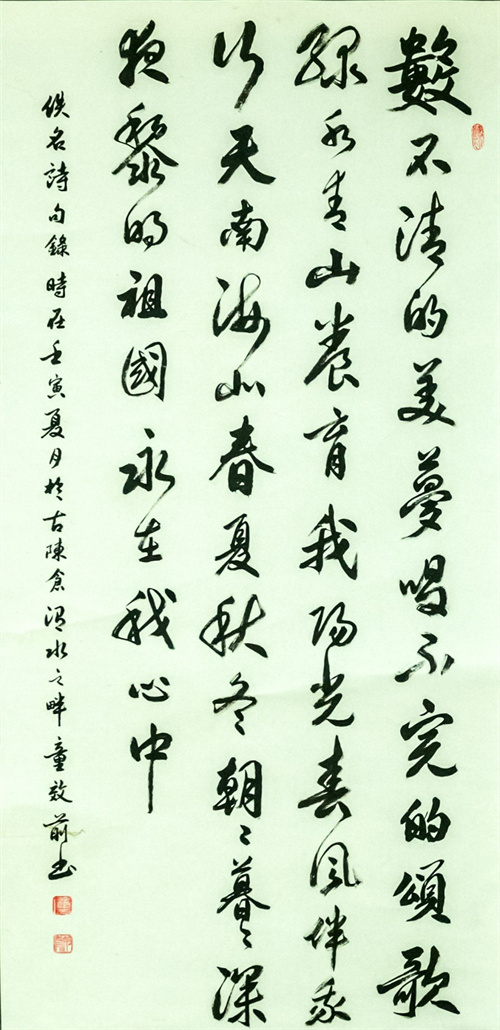 數不清的美夢唱不完的頌歌
綠水青山養育我陽光春風伴我
行天南海北春夏秋冬朝〻暮〻深
夜黎的祖國永在我心中
佚名詩句錄時在壬寅夏月於古陳倉渭水之畔童效前書